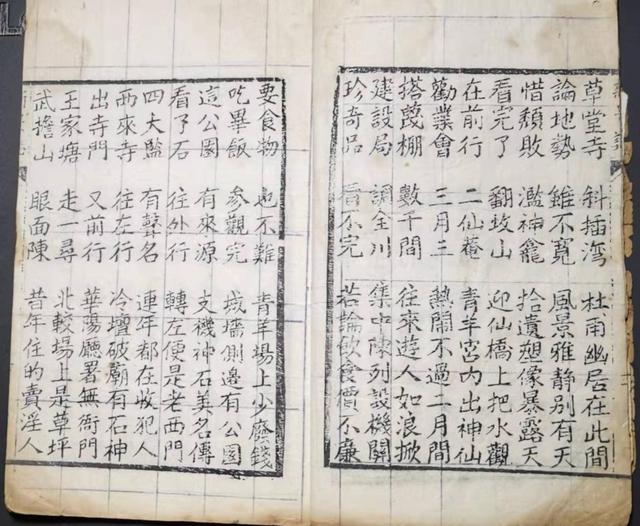 草堂寺 斜插湾 杜甫幽居在此間
論地勢 雖不寬 風景雅静别有天
惜頹敗 濫神龕 拾遺塑像暴露天
看完了 翻坟山 迎仙橋上把水觀
在前行 二仙菴 青羊宮内出神仙
勸業會 三月三 熱鬧不過二月間
搭蔑棚 數千間 往來遊人如浪掀
建設局 調全川 集中陳列設機關
珍奇品 看不完 若論飲食價不廉
要食物 也不難 青羊場上少廢錢
吃畢飯 参觀完 城墻側邊有公園
這公園 有來源 支機神石美名傳
看了石 往外行 轉左便是老西門
四大監 有聲名 連年都在收犯人
西來寺 往左行 冷壇破廟有石神
出寺門 又前行 華陽廳署無衙門
王家塘 走一尋 北較場上是草坪
武擔山 眼面陳 昔年住的賣淫人